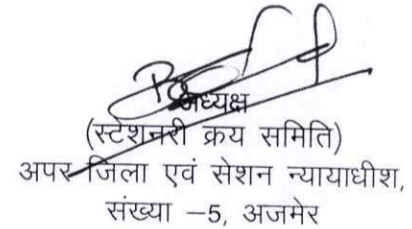 अध्यक्ष
(स्टेशनरी क्रय समिति)
अपर जिला एवं सेशन न्यायाधीश,
संख्या –5, अजमेर